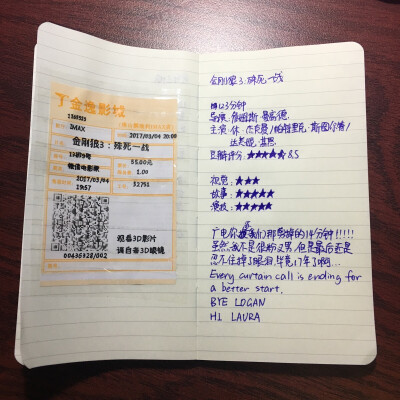 金逸影城
1360323
3MAX
2017/03/04 20:00
金刚狼3：殊死一战
13排9号
55.00元
微信电影票
1.00
2017/03/04
19:57
52751
观看3D影片
请自备3D眼镜
00436328/002
金刚狼3.殊死一战
123分钟
导演：詹姆斯·曼高德.
主演：休·杰克曼/帕特里克·斯图尔特/
达芙妮·基恩
豆瓣评分：★★★★★ 8.5
视觉：★★★
故事：★★★★★
演技：★★★★★
广电你还我们那剪掉的14分钟!!!!!
虽然我不是很粉叉男 但是最后还是
忍不住掉了眼泪.毕竟17年了啊...
Every curtain call is ending for
a better start.
BYE LOGAN
HI LAURA